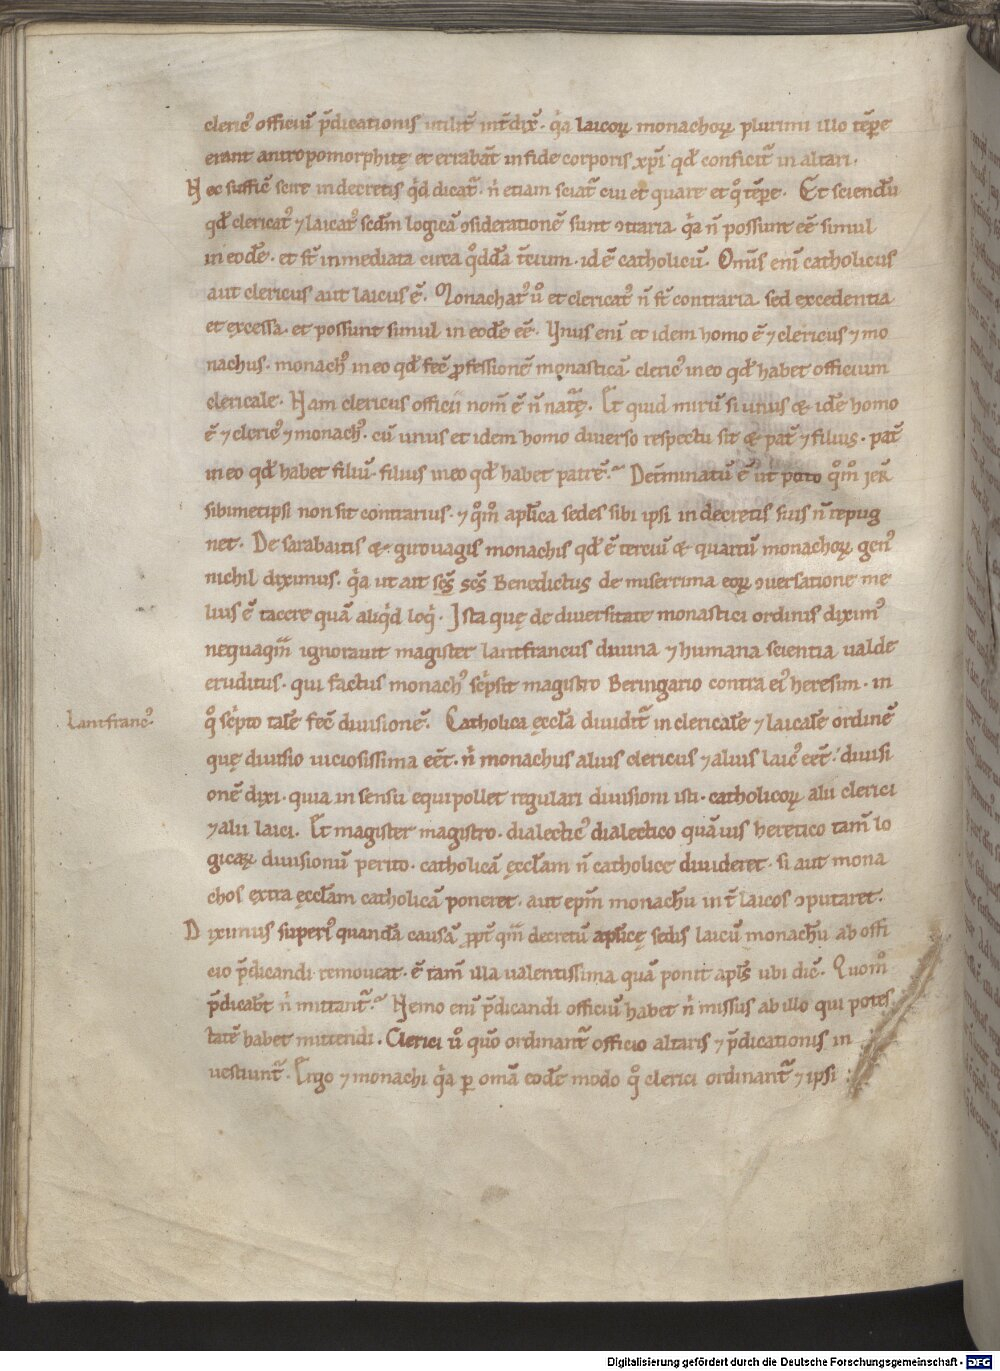 cleric᷒ officiū p̄dicationis utilit̄ int̄dix̄. qͥa laicoꝝ monachoꝝ plurimi illo tēpꝛe
erant antropomorphitę et errabāt in fide corporis xp̄i qđ conficit̄ in altari.
Nec suffic̄ scire in decretis qͥd dicat̄. n̄ etiam sciat̄ cui et quare et qͦ tēpꝛe. Et sciendū
qđ clericat᷒ ⁊ laicat᷒ scđm logicā ↄsiderationē sunt ↄtraria. qͥa n̄ possunt eē simul
in eodē. et st̄ inmediata circa qͦddā t̄cium. id ē catholicū. Om̄s eni catholicus
aut clericus aut laicus ē. Monachat᷒ ů et clericat᷒ n̄ st̄ contraria sed excedentia
et excessa. et possunt simul in eodē eē. Unus eni et idem homo ē ⁊ clericus ⁊ mo
nachus. monach᷒ in eo qđ fec̄ ꝓfessionē monasticā. cleric᷒ in eo qđ habet officium
clericale. Nam clericus officii nom̄ ē n̄ natꝛ̄ę. Et quid mirū si unus & idē homo
ē ⁊ cleric᷒ ⁊ monach᷒. cū unus et idem homo diverso respectu sit & pat̄ ⁊ filius. pat̄
in eo qđ habet filiū. filius in eo qđ habet patrē. Det̄minatū ē ut puto qͦm̊ jer̄
sibimetipsi non sit contrarius. ⁊ qͦm̊ apl̄ica sedes sibi ipsi in decretis suis n̄ repug
net. De sarabaitis & girovagis monachis qđ ē terciū & quartū monachoꝝ gen᷒
nichil diximus. qͥa ut ait sc̄s Benedictus de miserrima eoꝝ ↄversatione me
lius ē tacere quā aliqͥd loqͥ. Ista quę de diversitate monastici ordinis dixim᷒
nequaqͣm ignoravit magister lantfrancus divina ⁊ humana scientia valde
eruditus. qui factus monach᷒ scͥpsit magistro Beringario contra ei᷒ heresim. in
Lantfranc᷒.
qͦ scͥpto talē fec̄ divisionē. Catholica ęccl̄a dividit̄ in clericalē ⁊ laicalē ordinē
quę divisio viciosissima eēt. n̄ monachus alius clericus ⁊ alius laic᷒ eēt. divisi
onē dixi. quia in sensu equipollet regulari divisioni isti. catholicoꝝ alii clerici
⁊ alii laici. Et magister magistro. dialectic᷒ dialectico quāvis heretico tam̄ lo
gicaꝝ divisionū perito. catholicā ęccl̄am n̄ catholice divideret. si aut mona
chos extra ęccl̄am catholicā poneret. aut ep̄m monachū int̄ laicos ↄputaret.
Diximus superi᷒ quandā causā ꝓpt̄ qͣm decretū apl̄icę sedis laicū monachū ab offi
cio p̄dicandi removeat. ē tam̄ illa valentissima quā ponit apl̄s ubi dic̄. Quom̊
p̄dicabt̄ n̄ mittant̄. Nemo eni p̄dicandi officiū habet n̄ missus ab illo qui potes
tatē habet mittendi. Clerici ů quō ordinant̄ officio altaris ⁊ p̄dicationis in
vestiunt̄. Ergo ⁊ monachi qͥa ꝑ om̄a eodē modo qͦ clerici ordinant̄ ⁊ ipsi
Digitalisierung gefördert durch die Deutsche Forschungsgemeinschaft - DFG